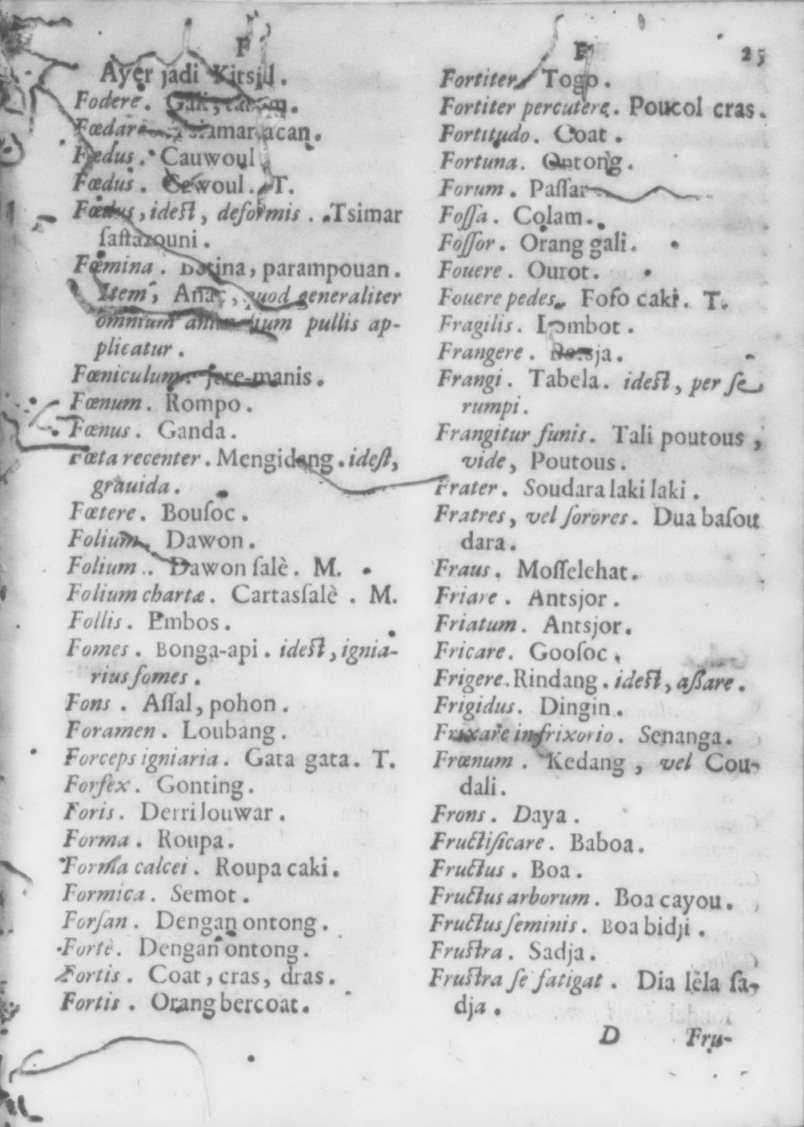 F
Ayer jadi Kitsjil.
Fodere. Gali,
Fœdare.
Fœdus. Cauwoul
Fœdus. Cewoul. T.
Fœdus, ideſt, deformis. Tsimar
ſaſtazouni.
Fœmina. Betina, parampouan.
Item, Anac, quod generaliter
omnium animalium pullis ap-
plicatur.
Fœniculum. manis.
Fœnum. Rompo.
Fœnus. Ganda.
Fœta recenter. Mengidang. ideſt,
grauida.
Fœtere. Bouſoc.
Folium. Dawon.
Folium. Dawon ſalè. M.
Folium chartæ. Cartasſalè. M.
Follis. Embos.
Fomes. Bonga-api. ideſt, ignia-
rius fomes.
Fons. Aſſal, pohon.
Foramen. Loubang.
Forceps igniaria. Gata gata. T.
Forfex. Gonting.
Foris. Derri louwar.
Forma. Roupa.
Forma calcei. Roupa caki.
Formica. Semot.
Forſan. Dengan ontong.
Fortè. Dengan ontong.
Fortis. Coat, cras, dras.
Fortis. Orang bercoat.
F 25
Fortiter. Togo.
Fortiter percutere. Poucol cras.
Fortitudo. Coat.
Fortuna. Ontong.
Forum. Paſſar
Foſſa. Colam.
Foſſor. Orang gali.
Fouere. Ourot.
Fouere pedes. Fofo caki. T.
Fragilis. Lombot.
Frangere.
Frangi. Tabela. ideſt, per ſe
rumpi.
Frangitur funis. Tali poutous,
vide, Poutous.
Frater. Soudara laki laki.
Fratres, vel ſorores. Dua baſou
dara.
Fraus. Moſſelehat.
Friare. Antsjor.
Friatum. Antsjor.
Fricare. Gooſoc.
Frigere. Rindang. ideſt, aſſare.
Frigidus. Dingin.
Frixare in frixorio. Senanga.
Frœnum. Kedang, vel Cou-
dali.
Frons. Daya.
Fructificare. Baboa.
Fructus. Boa.
Fructus arborum. Boa cayou.
Fructus ſeminis. Boa bidji.
Fruſtra. Sadja.
Fruſtra ſe fatigat. Dia lèla ſa-
dja.
D Fru-